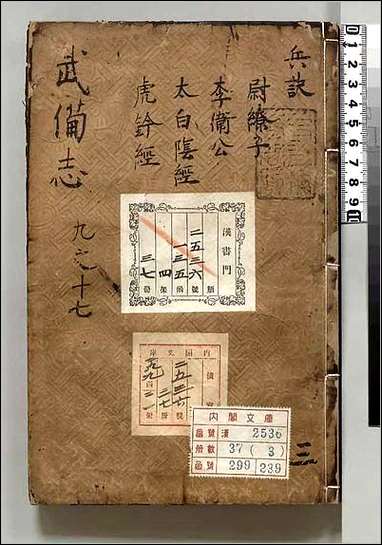 兵訣
尉繚子
李衛公
太白陰經
虎鈐經
武備志 九之十七
漢書門
二五三六
號
一三五
函
四
架
三七
冊
內閣文庫
番號 漢 2536
冊數 37(3)
函號 299 239
三
0 1 2 3 4 5 6 7 8 9 10